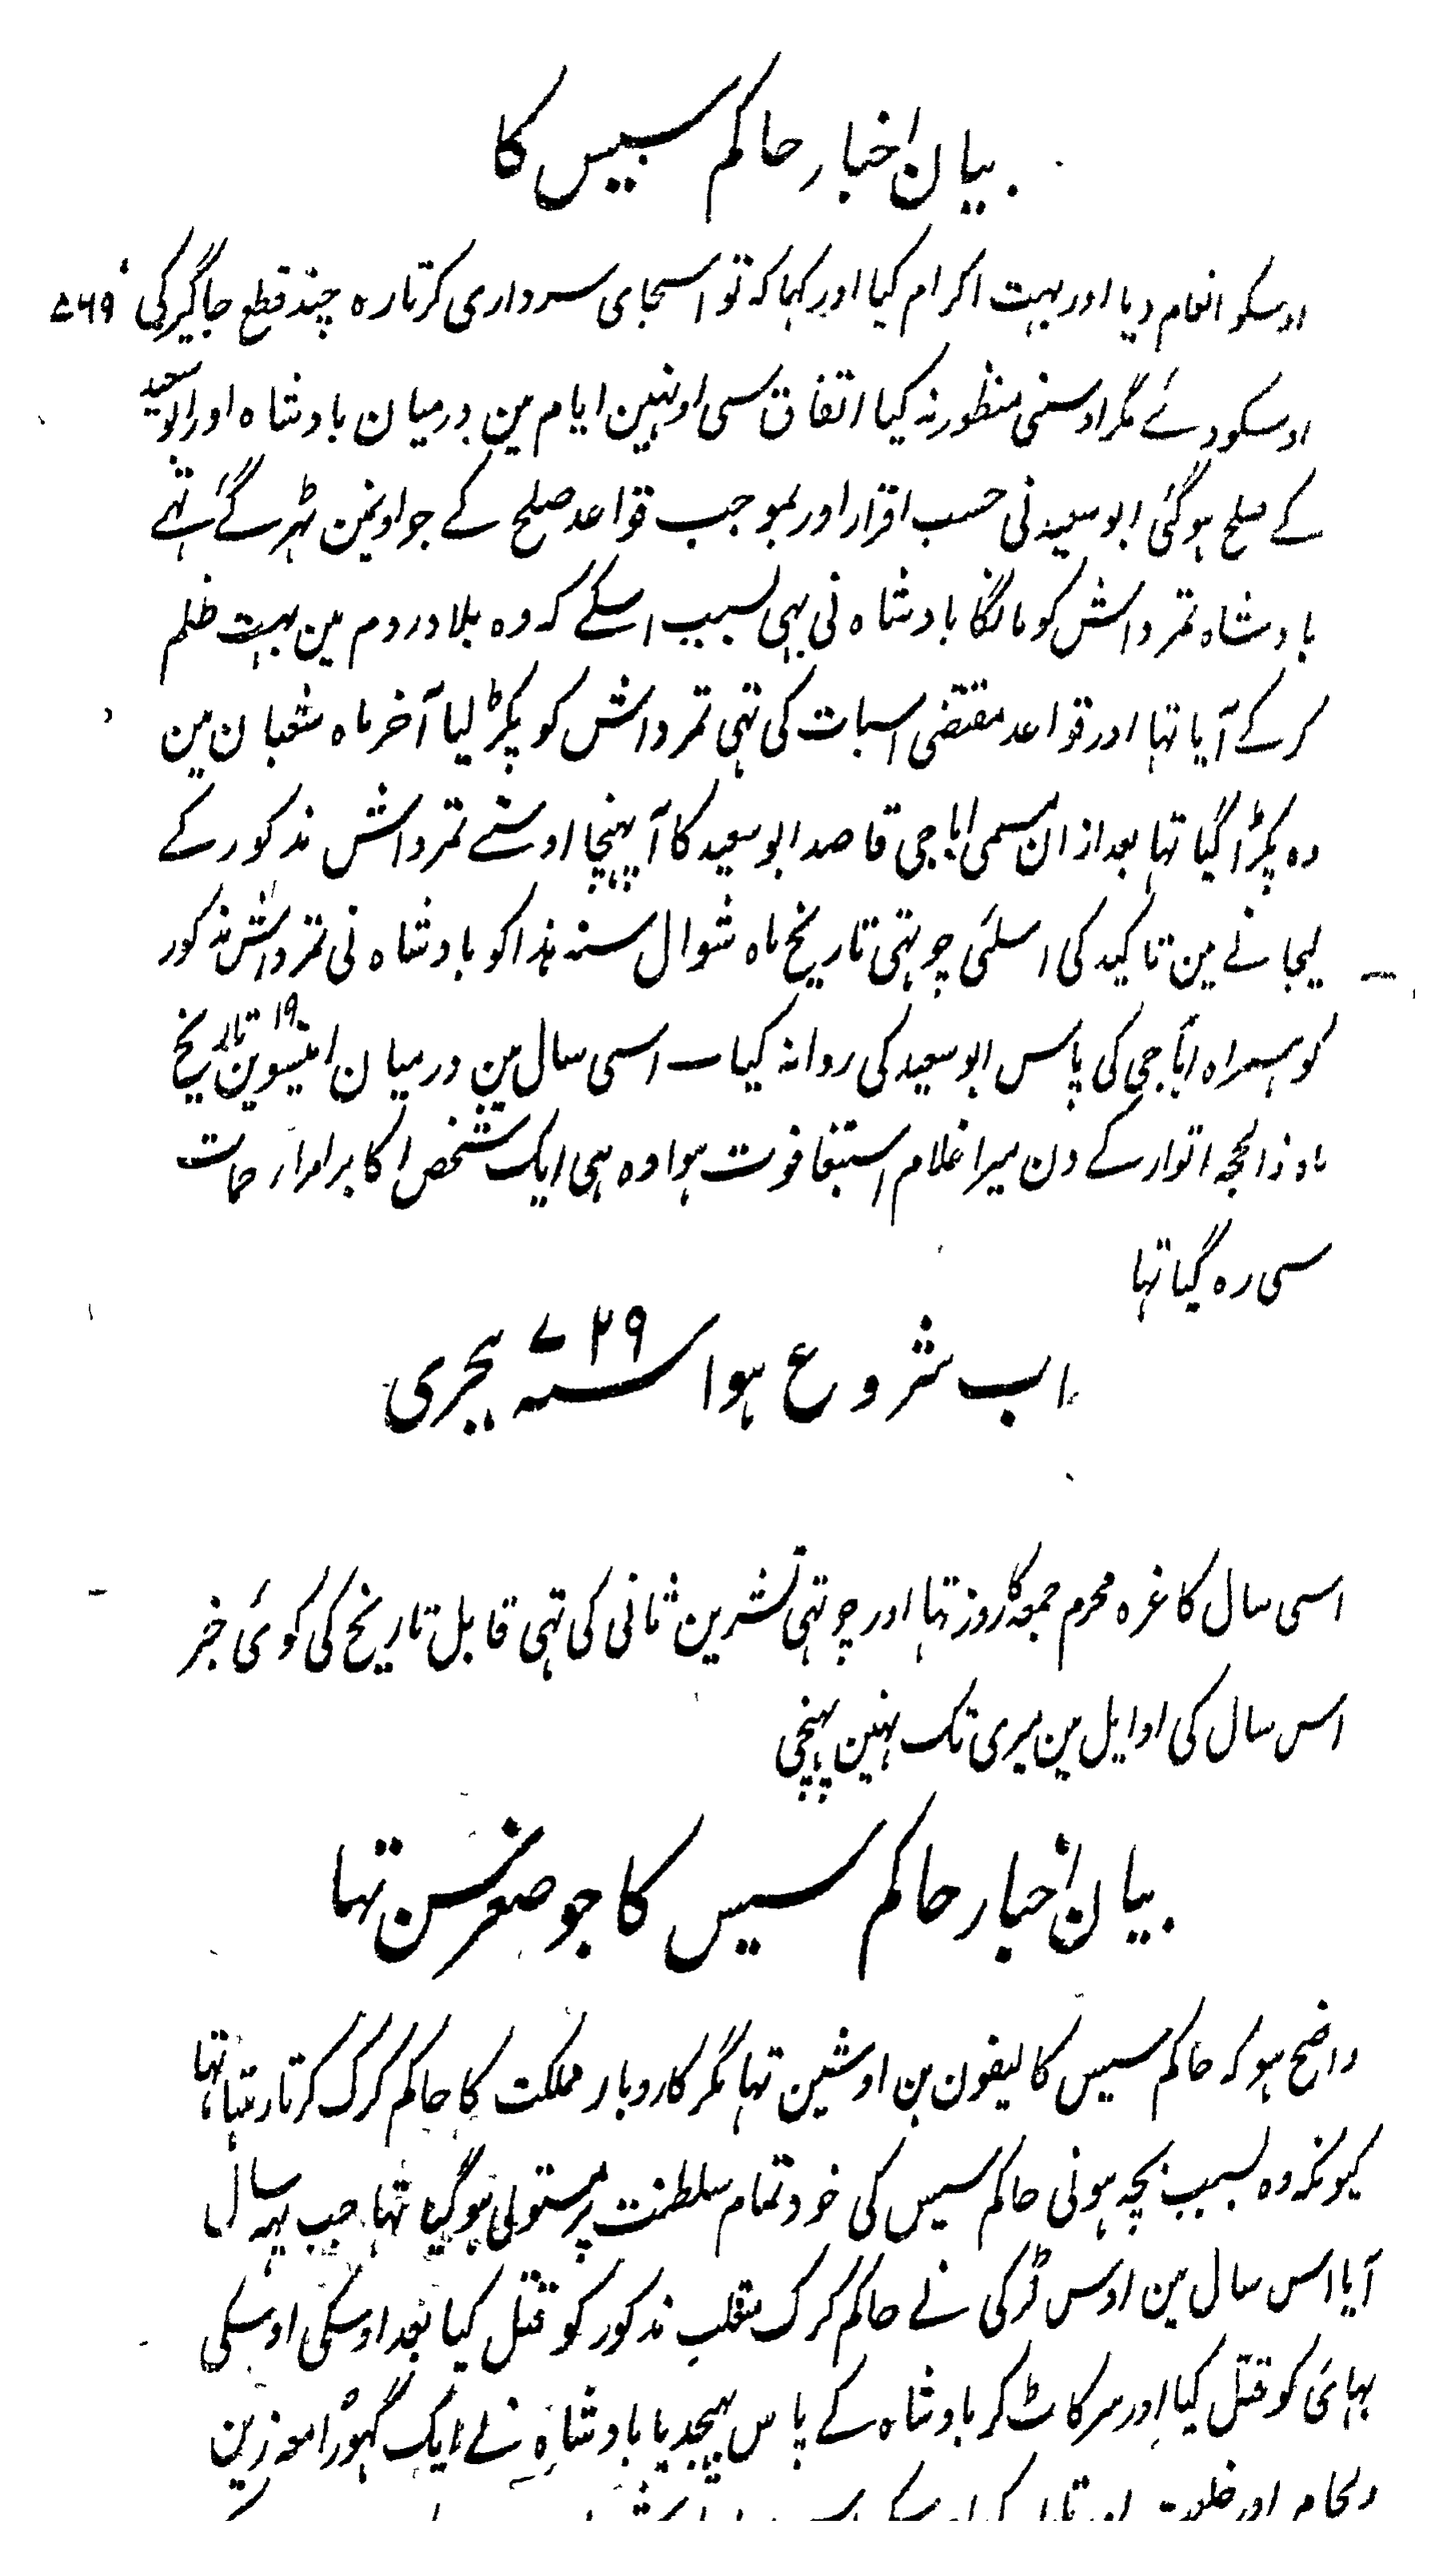 بیان اخبار حاکم سیس کا
اوسکو انعام دیا اور بہت اکرام کیا اور کہا کہ تو اسجای سرداری کرتا رہ چند قطع جاگیر کی ۷۶۹
اوسکو دئے مگر اوسنی منظور نہ کیا اتفاق سی اونہین ایام مین درمیان بادشاہ اور ابو سعید
کے صلح ہو گئی ابو سعید نی حسب اقرار اور بموجب قواعد صلح کے جو اونمین ٹہر گئے تہے
بادشاہ تمرداش کو مانگا بادشاہ نی بہی بسبب اسکے کہ وہ بلاد روم مین بہت ظلم
کر کے آیا تہا اور قواعد مقتضی اسبات کی تہی تمرداش کو پکڑ لیا آخر ماہ شعبان مین
وہ پکڑا گیا تہا بعد ازان مسمی اباجی قاصد ابو سعید کا آ پہنچا اوسنے تمرداش مذکور کے
لیجانے مین تاکید کی اسلئی چوتہی تاریخ ماہ شوال سنہ ہذا کو بادشاہ نی تمرداش مذکور
کو ہمراہ اباجی کی پاس ابو سعید کی روانہ کیا اسی سال مین درمیان انیسوین ۱۹ تاریخ
ماہ ذالحجہ اتوار کے دن میرا غلام استبغا فوت ہوا وہ ہی ایک شخص اکابر امراء حمات
سی رہ گیا تہا
اب شروع ہوا سنہ ۷۲۹ ہجری
اسی سال کا غرہ محرم جمعہ کا روز تہا اور چوتہی تشرین ثانی کی تہی قابل تاریخ کی کوئی خبر
اس سال کی اوایل مین میری تک نہین پہنچی
بیان اخبار حاکم سیس کا جو صغر سن تہا
واضح ہو کہ حاکم سیس کا لیفون بن اوشین تہا مگر کاروبار مملکت کا حاکم کرک کرتا رہتا تہا
کیونکہ وہ بسبب بچہ ہونی حاکم سیس کی خود تمام سلطنت پر مستولی ہو گیا تہا جب یہہ سال
آیا اس سال مین اوس لڑکی نے حاکم کرک متغلب مذکور کو قتل کیا بعد اوسکی اوسکی
بہائی کو قتل کیا اور سر کاٹ کر بادشاہ کے پاس بہیجدیا بادشاہ نے ایک گہوڑا معہ زین
ولجام اور خلعت اور